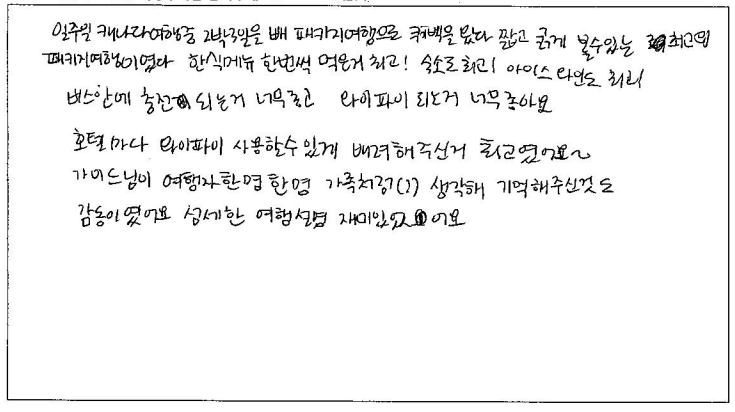 일주일 캐나다여행중 2박3일을 빼 패키지여행으로 퀘백을 왔다 짧고 굵게 볼수있는 최고의
패키지여행이였다 한식메뉴 한번씩 먹은거 최고! 숙소도 최고! 아이스와인도 최고
버스안에 충전 되는거 너무좋고 와이파이 되는거 너무좋아요
호텔마다 와이파이 사용할수있게 배려해주신거 최고였어요~
가이드님이 여행자한명한명 가족처럼(?) 생각해 기억해주신것도
감동이였어요 상세한 여행설명 재미있었어요